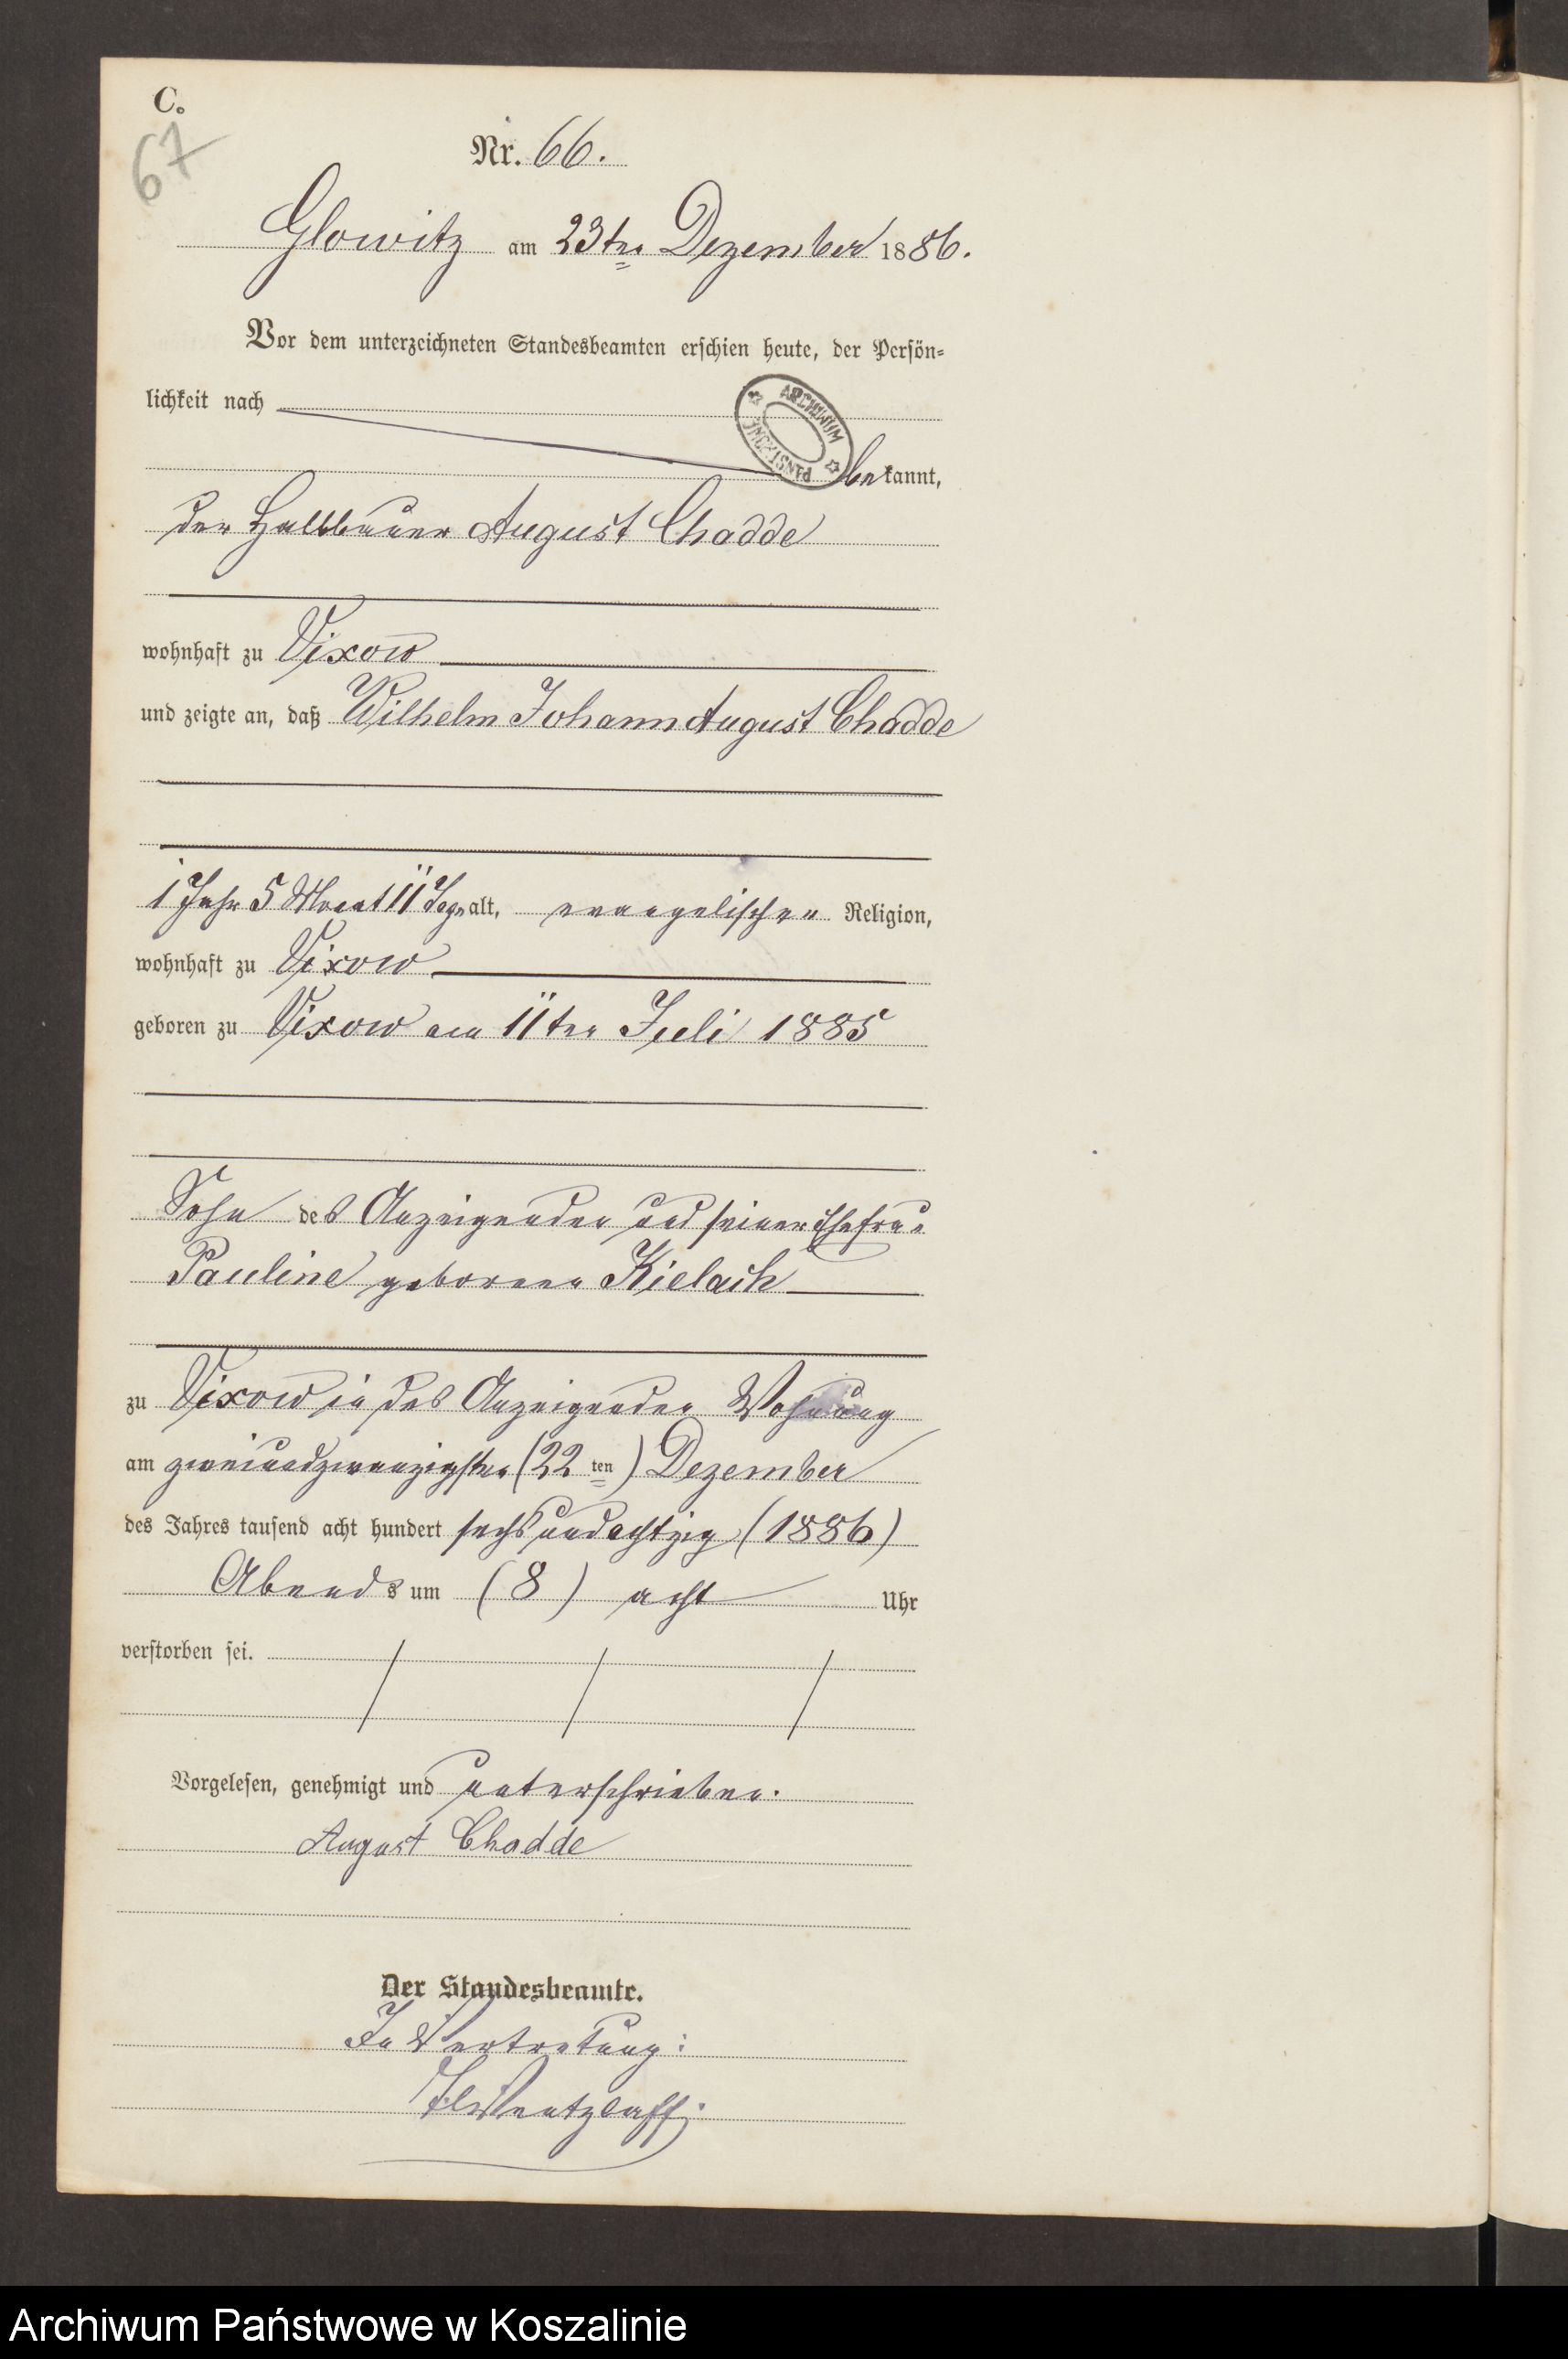 C.
67
Nr. 66.
Glowitz am 23ten Dezember 1886.
Vor dem unterzeichneten Standesbeamten erschien heute, der Persön-
lichkeit nach
ARCHIWUM PAŃSTWOWE
bekannt,
der Halbbauer August Chadde
wohnhaft zu Vixow
und zeigte an, daß Wilhelm Johann August Chadde
1 Jahr 5 Monat 11 Tage alt, evangelischen Religion,
wohnhaft zu Vixow
geboren zu Vixow am 11ten Juli 1885
Sohn des Anzeigenden und seiner Ehefrau
Pauline geborenen Kielack
zu Vixow in des Anzeigenden Wohnung
am zweiundzwanzigsten (22 ten) Dezember
des Jahres tausend acht hundert sechsundachtzig (1886)
Abends um (8) acht Uhr
verstorben sei.
Vorgelesen, genehmigt und unterschrieben.
August Chadde
Der Standesbeamte.
In Vertretung:
Wentzlaff
Archiwum Państwowe w Koszalinie